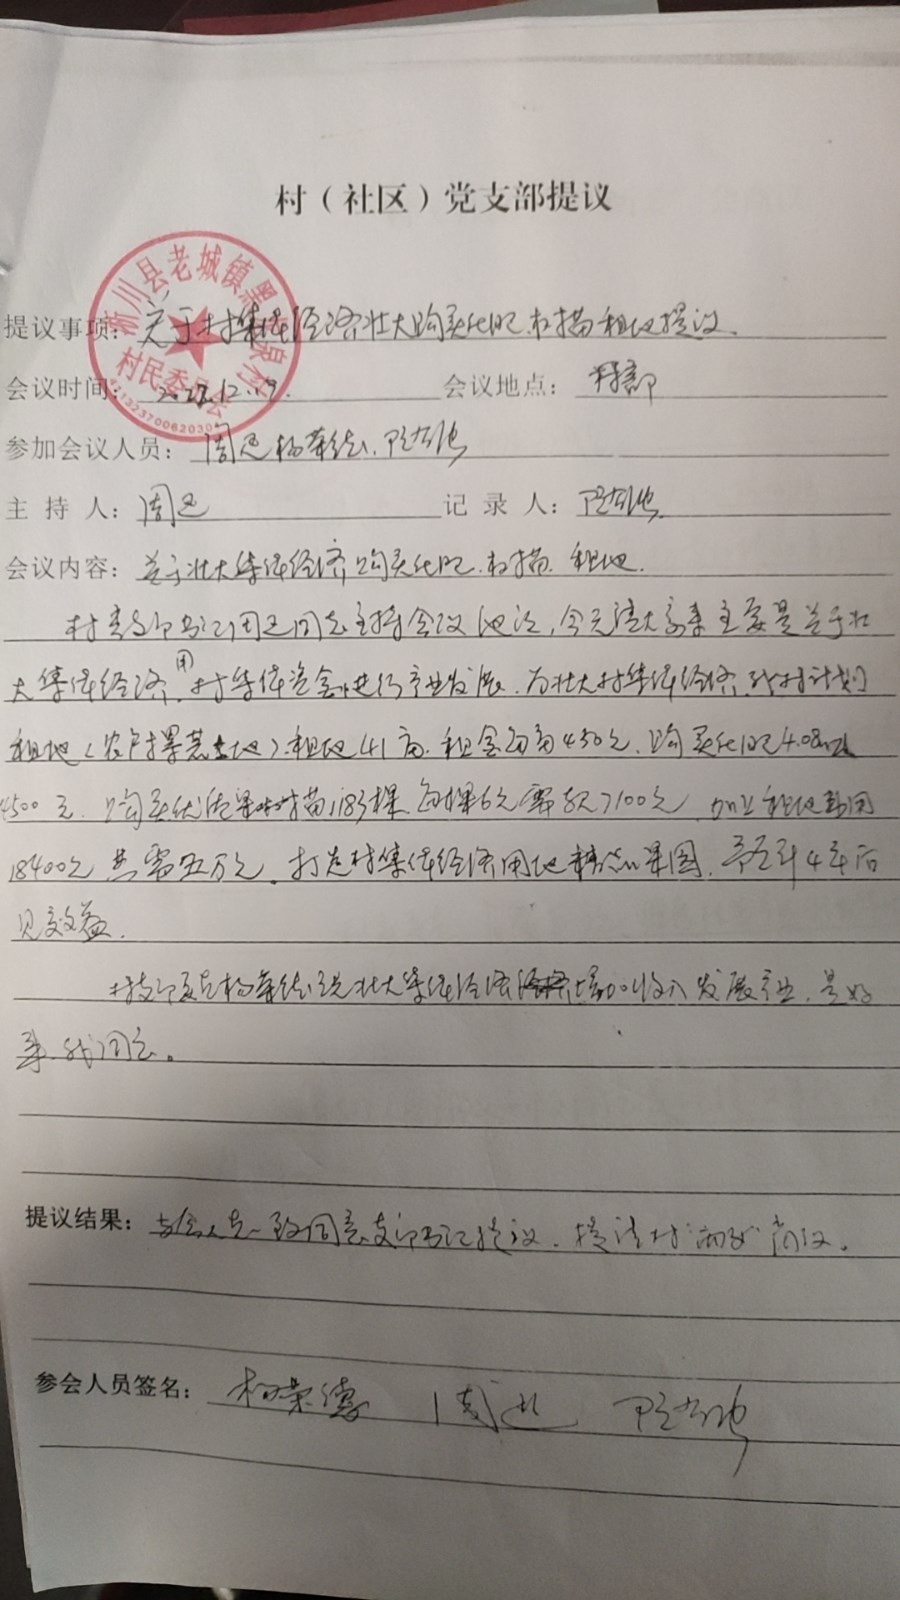 村（社区）党支部提议
淅川县老城镇
村民委员会
提议事项：关于村集体经济壮大购买化肥、树苗租地提议
会议时间： 12.19. 会议地点：村部
参加会议人员：周迅 杨荣德、
主 持 人：周迅 记 录 人：
会议内容：关于壮大集体经济购买化肥、树苗、租地.
村支部书记周迅同志主持会议他说，今天请大家来主要是关于壮
大集体经济，用村集体资金进行产业发展，为壮大村集体经济，我村计划
租地（农户撂荒土地）.租地41亩.租金每亩450元.购买化肥4.08吨
4500元.购买优质果树苗1183棵.每棵6元需款7100元，加上租地费用
18400元共需五万元，打造村集体经济用地 果园，预计4年后
见效益.
村支部 杨荣德说壮大集体经济增加收入发展产业，是好
事我同意。
提议结果：与会人员一致同意支部书记提议，提请村“两委”商议。
参会人员签名：杨荣德 周迅